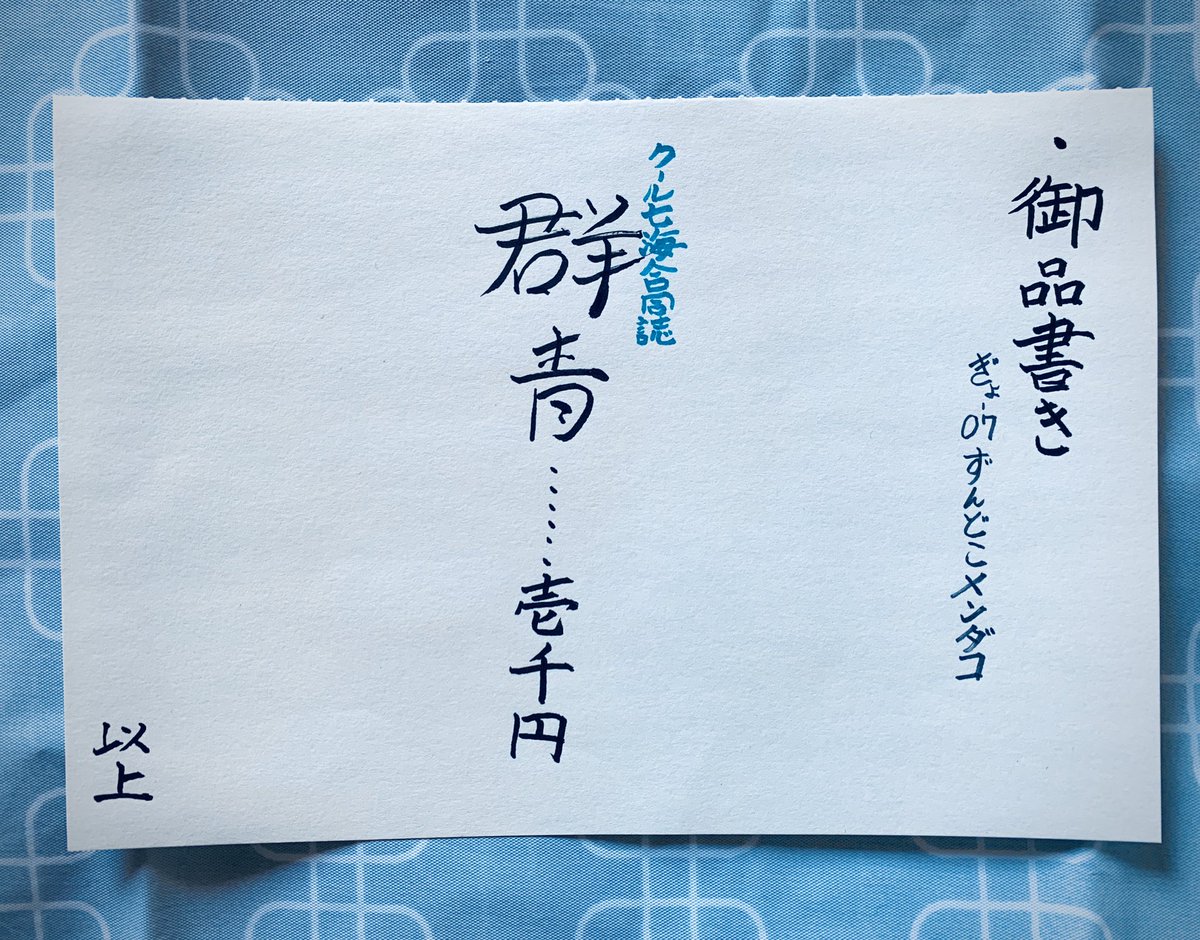 ・御品書き
ぎょ-07ずんどこメンダコ
クール七海合同誌
群青……壱千円
以上